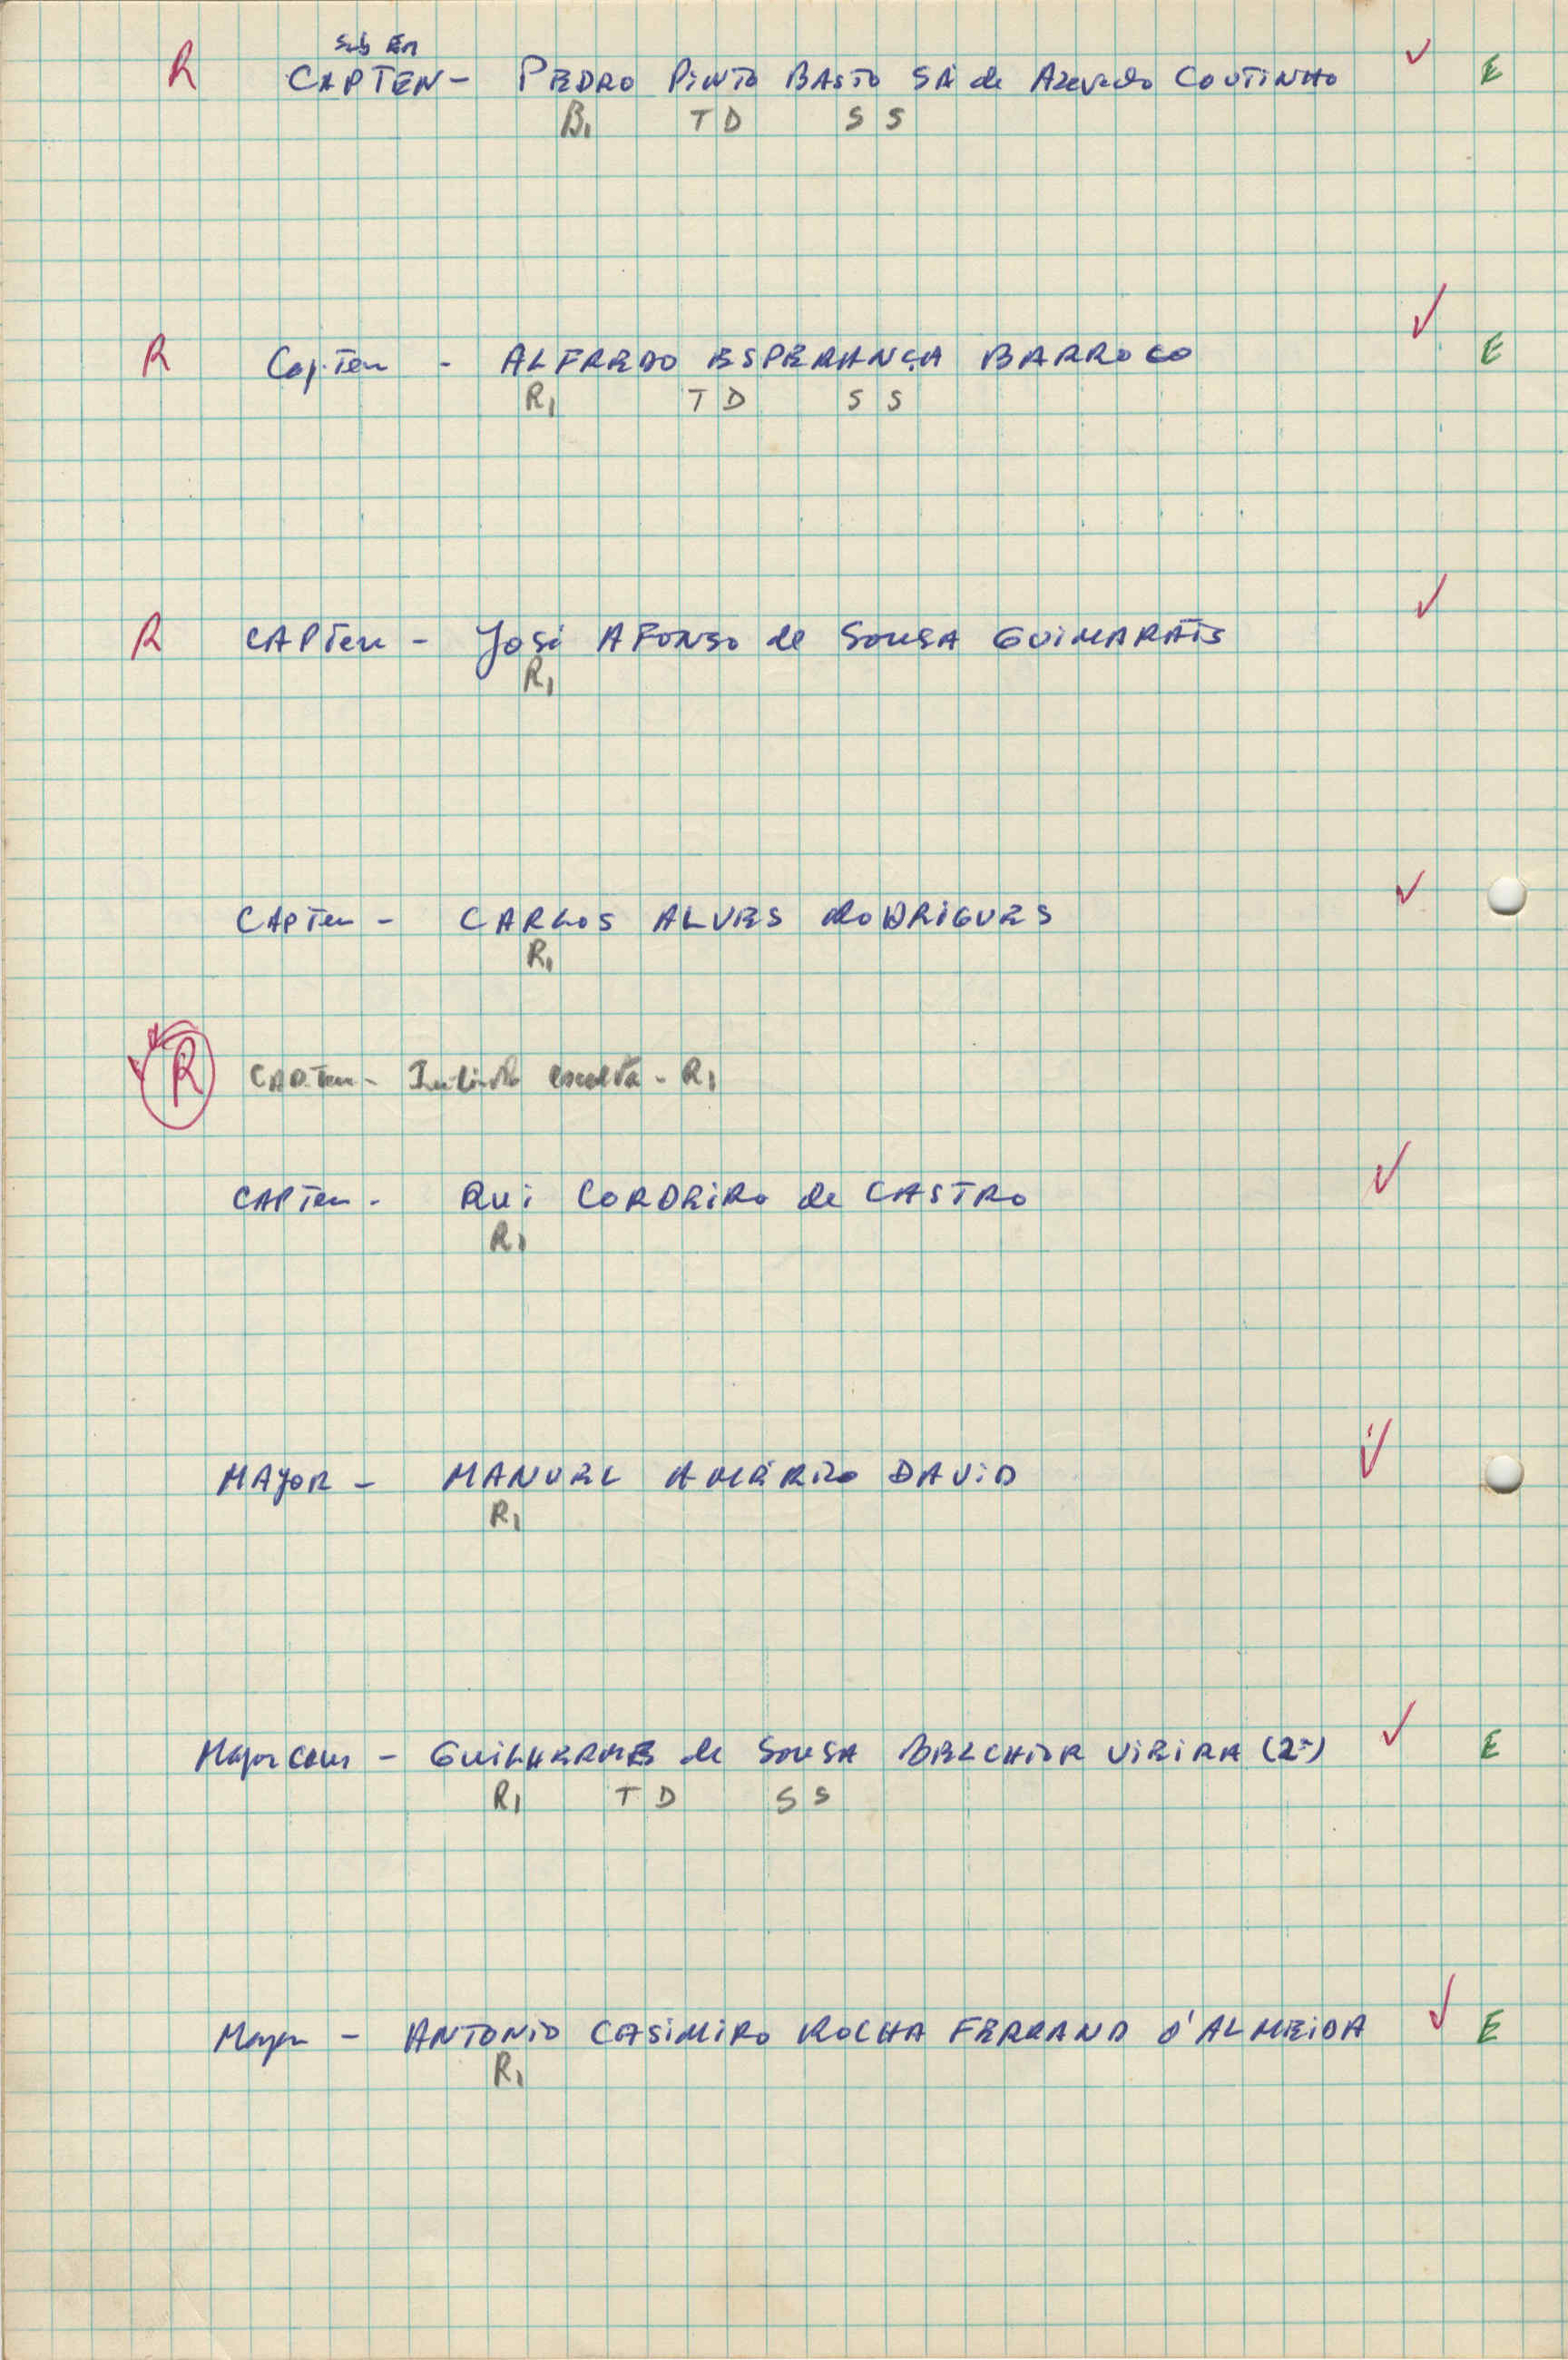 Sub En
R CAPTEN - PEDRO PINTO BASTO SÁ de Azevedo COUTINHO ✓ E
B1 T D S S
R Cap. Ten - ALFREDO ESPERANÇA BARROCO ✓ E
R1 T D S S
R CAPTen - José AFONSO de SOUSA GUIMARÃIS ✓
R1
CAPTen - CARLOS ALVES RODRIGUES ✓
R1
R CAPTen - escolta - R1
CAPTen - RUI CORDEIRO de CASTRO ✓
R1
MAJOR - MANUEL AMÉRICO DAVID ✓
R1
Major - GUILHERME de SOUSA BELCHIOR VIEIRA (2º) ✓ E
R1 T D S S
Major - ANTONIO CASIMIRO ROCHA FERRAND D'ALMEIDA ✓ E
R1